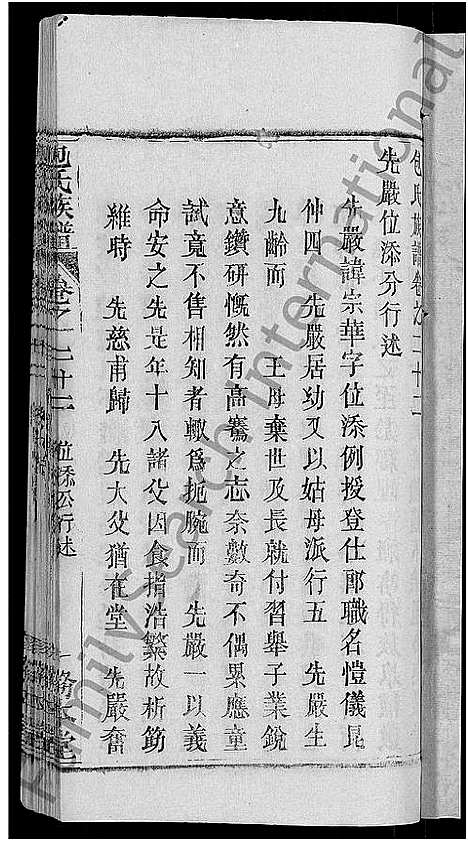 包氏族譜卷之二十二
先嚴位添公行述
先嚴諱宗華字位添例授登仕郎職名愷儀昆
仲四 先嚴居幼又以姑母派行五 先嚴生
九齡而 王母棄世及長就付習舉子業銳
意鑽研慨然有高騫之志奈數奇不偶累應童
試竟不售相知者輙爲扼腕而 先嚴一以義
命安之先是年十八諸父因食指浩繁故析箸
維時 先慈甫歸 先大父猶在堂 先嚴奮
包氏族譜 卷之二十二 位添公行述 一
FamilySearch International